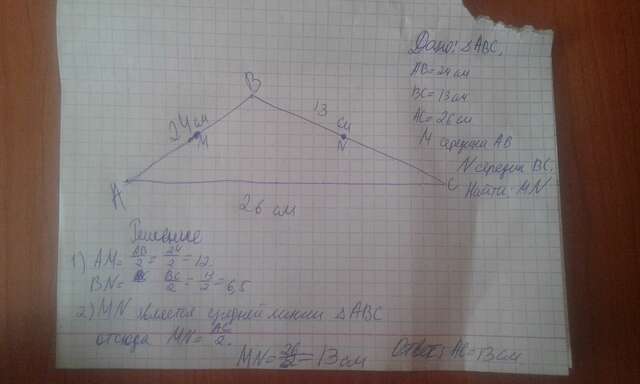 Дано: ΔABC,
AB=24 см
BC=13 см
AC=26 см
M середина AB
N середин BC.
Найти: MN
B
24 см
13 см
M
N
A
C
26 см
Решение
1) AM= AB/2 = 24/2 = 12
BN= BC/2 = 13/2 = 6,5
2) MN является средней линии ΔABC
отсюда MN= AC/2.
MN= 26/2 = 13 см
Ответ: AC=13 см